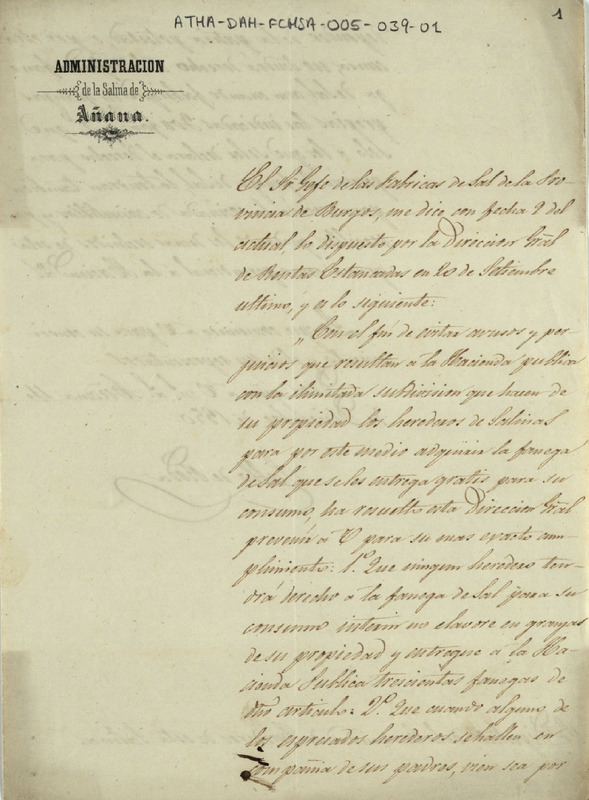 ATHA-DAH-FCMSA-005-039-01
1
ADMINISTRACION
de la Salina de
Añana.
El Sr. Gefe de las Fabricas de Sal de la Pro-
vincia de Burgos, me dice con fecha 9 del
actual, lo dispuesto por la Direccion Gral
de Rentas Estancadas en 20 de Setiembre
ultimo, y es lo siguiente:
"Con el fin de evitar avusos y per-
juicios que resultan a la Hacienda publica
con la ilimitada subdivision que hacen de
su propiedad los herederos de Salinas
para por este medio adquirir la fanega
de Sal que se les entrega gratis para su
consumo, ha resuelto esta Direccion Gral
prevenir a V para su mas exacto cum-
plimiento: 1.º Que ningun heredero ten-
drá derecho a la fanega de Sal para su
consumo interin no elavore en granjas
de su propiedad y entregue a la Ha-
cienda Publica trescientas fanegas de
dho articulo: 2.º Que cuando alguno de
los espresados herederos se hallen en
compañia de sus padres, vien sea por